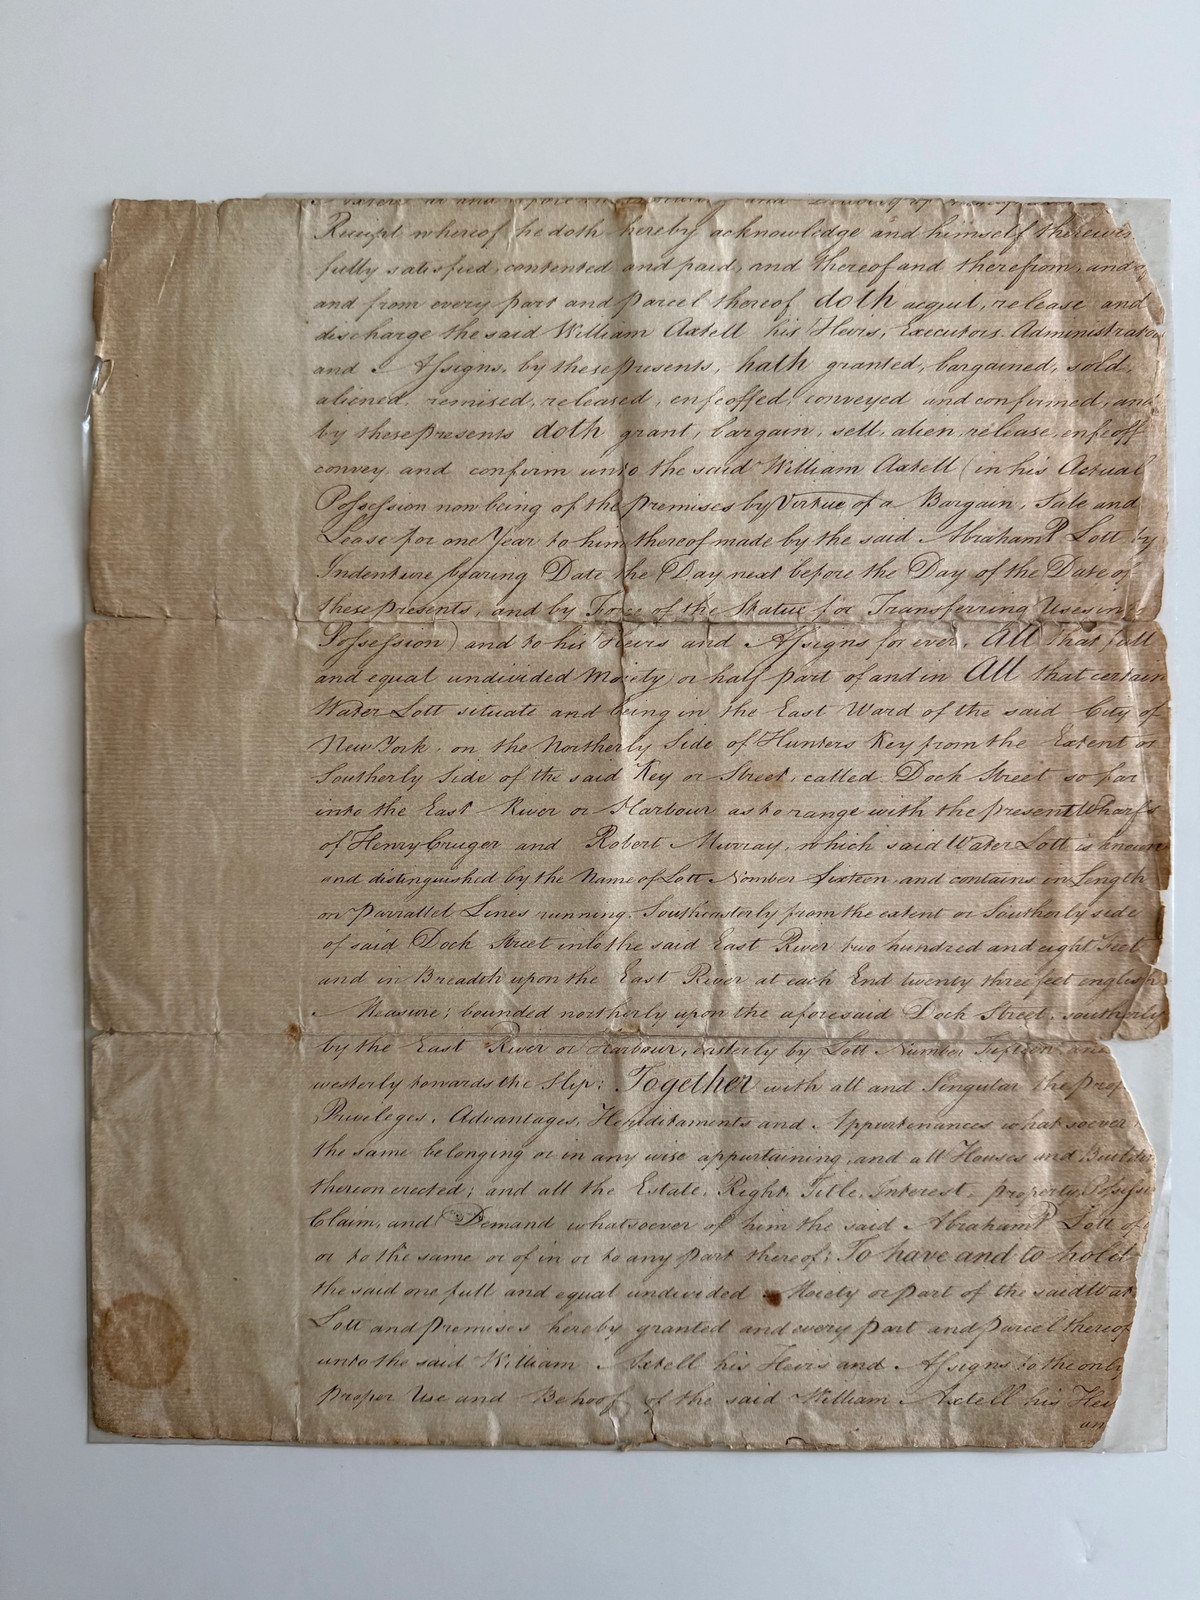 and
Receipt whereof he doth hereby acknowledge and himself therewi
fully satisfied, contented and paid, and thereof and therefrom, and of
and from every part and parcel thereof doth acquit, release and
discharge the said William Axtell his Heirs, Executors Administrators
and Assigns, by these presents, hath granted, bargained, sold,
aliened, remised, released, enfeoffed, conveyed and confirmed, and
by these presents doth grant, bargain, sell, alien, release, enfeoff
convey, and confirm unto the said William Axtell (in his Actual
Possession now being of the premises by Virtue of a Bargain, Sale and
Lease for one Year to him thereof made by the said Abraham P Lott by
Indenture bearing Date the Day next before the Day of the Date of
these presents, and by Force of the Statue for Transferring Uses in
Possession) and to his Heirs and Assigns for ever, All that full
and equal undivided Moiety or half part of and in All that certain
Water Lott situate and being in the East Ward of the said City of
New York, on the Northerly Side of Hunters Key from the Extent or
Southerly Side of the said Key or Street, called Dock Street so far
into the East River or Harbour as to range with the present Wharfs
of Henry Cruger and Robert Murray, which said Water Lott is known
and distinguished by the Name of Lott Nomber Sixteen, and contains in Length
on Parrallel Lines running Southeasterly from the extent or Southerly side
of said Dock Street into the said East River two hundred and eight Feet
and in Breadth upon the East River at each End twenty three feet english
Measure; bounded northerly upon the aforesaid Dock Street, southerly
by the East River or Harbour, easterly by Lott Number Fifteen and
westerly towards the Slip: Together with all and Singular the prof
Privileges, Advantages, Hereditaments and Appurtenances whatsoever
the same belonging or in any wise appurtaining, and all Houses and Buildin
thereon erected; and all the Estate, Right, Title, Interest, property, Possessi
Claim, and Demand whatsoever of him the said Abraham P Lott of
or to the same or of in or to any part thereof: To have and to hold
the said one full and equal undivided Moiety or part of the said Wat
Lott and premises hereby granted and every part and parcel thereof
unto the said William Axtell his Heirs and Assigns to the only
proper Use and Behoof of the said William Axtell his Hei
an